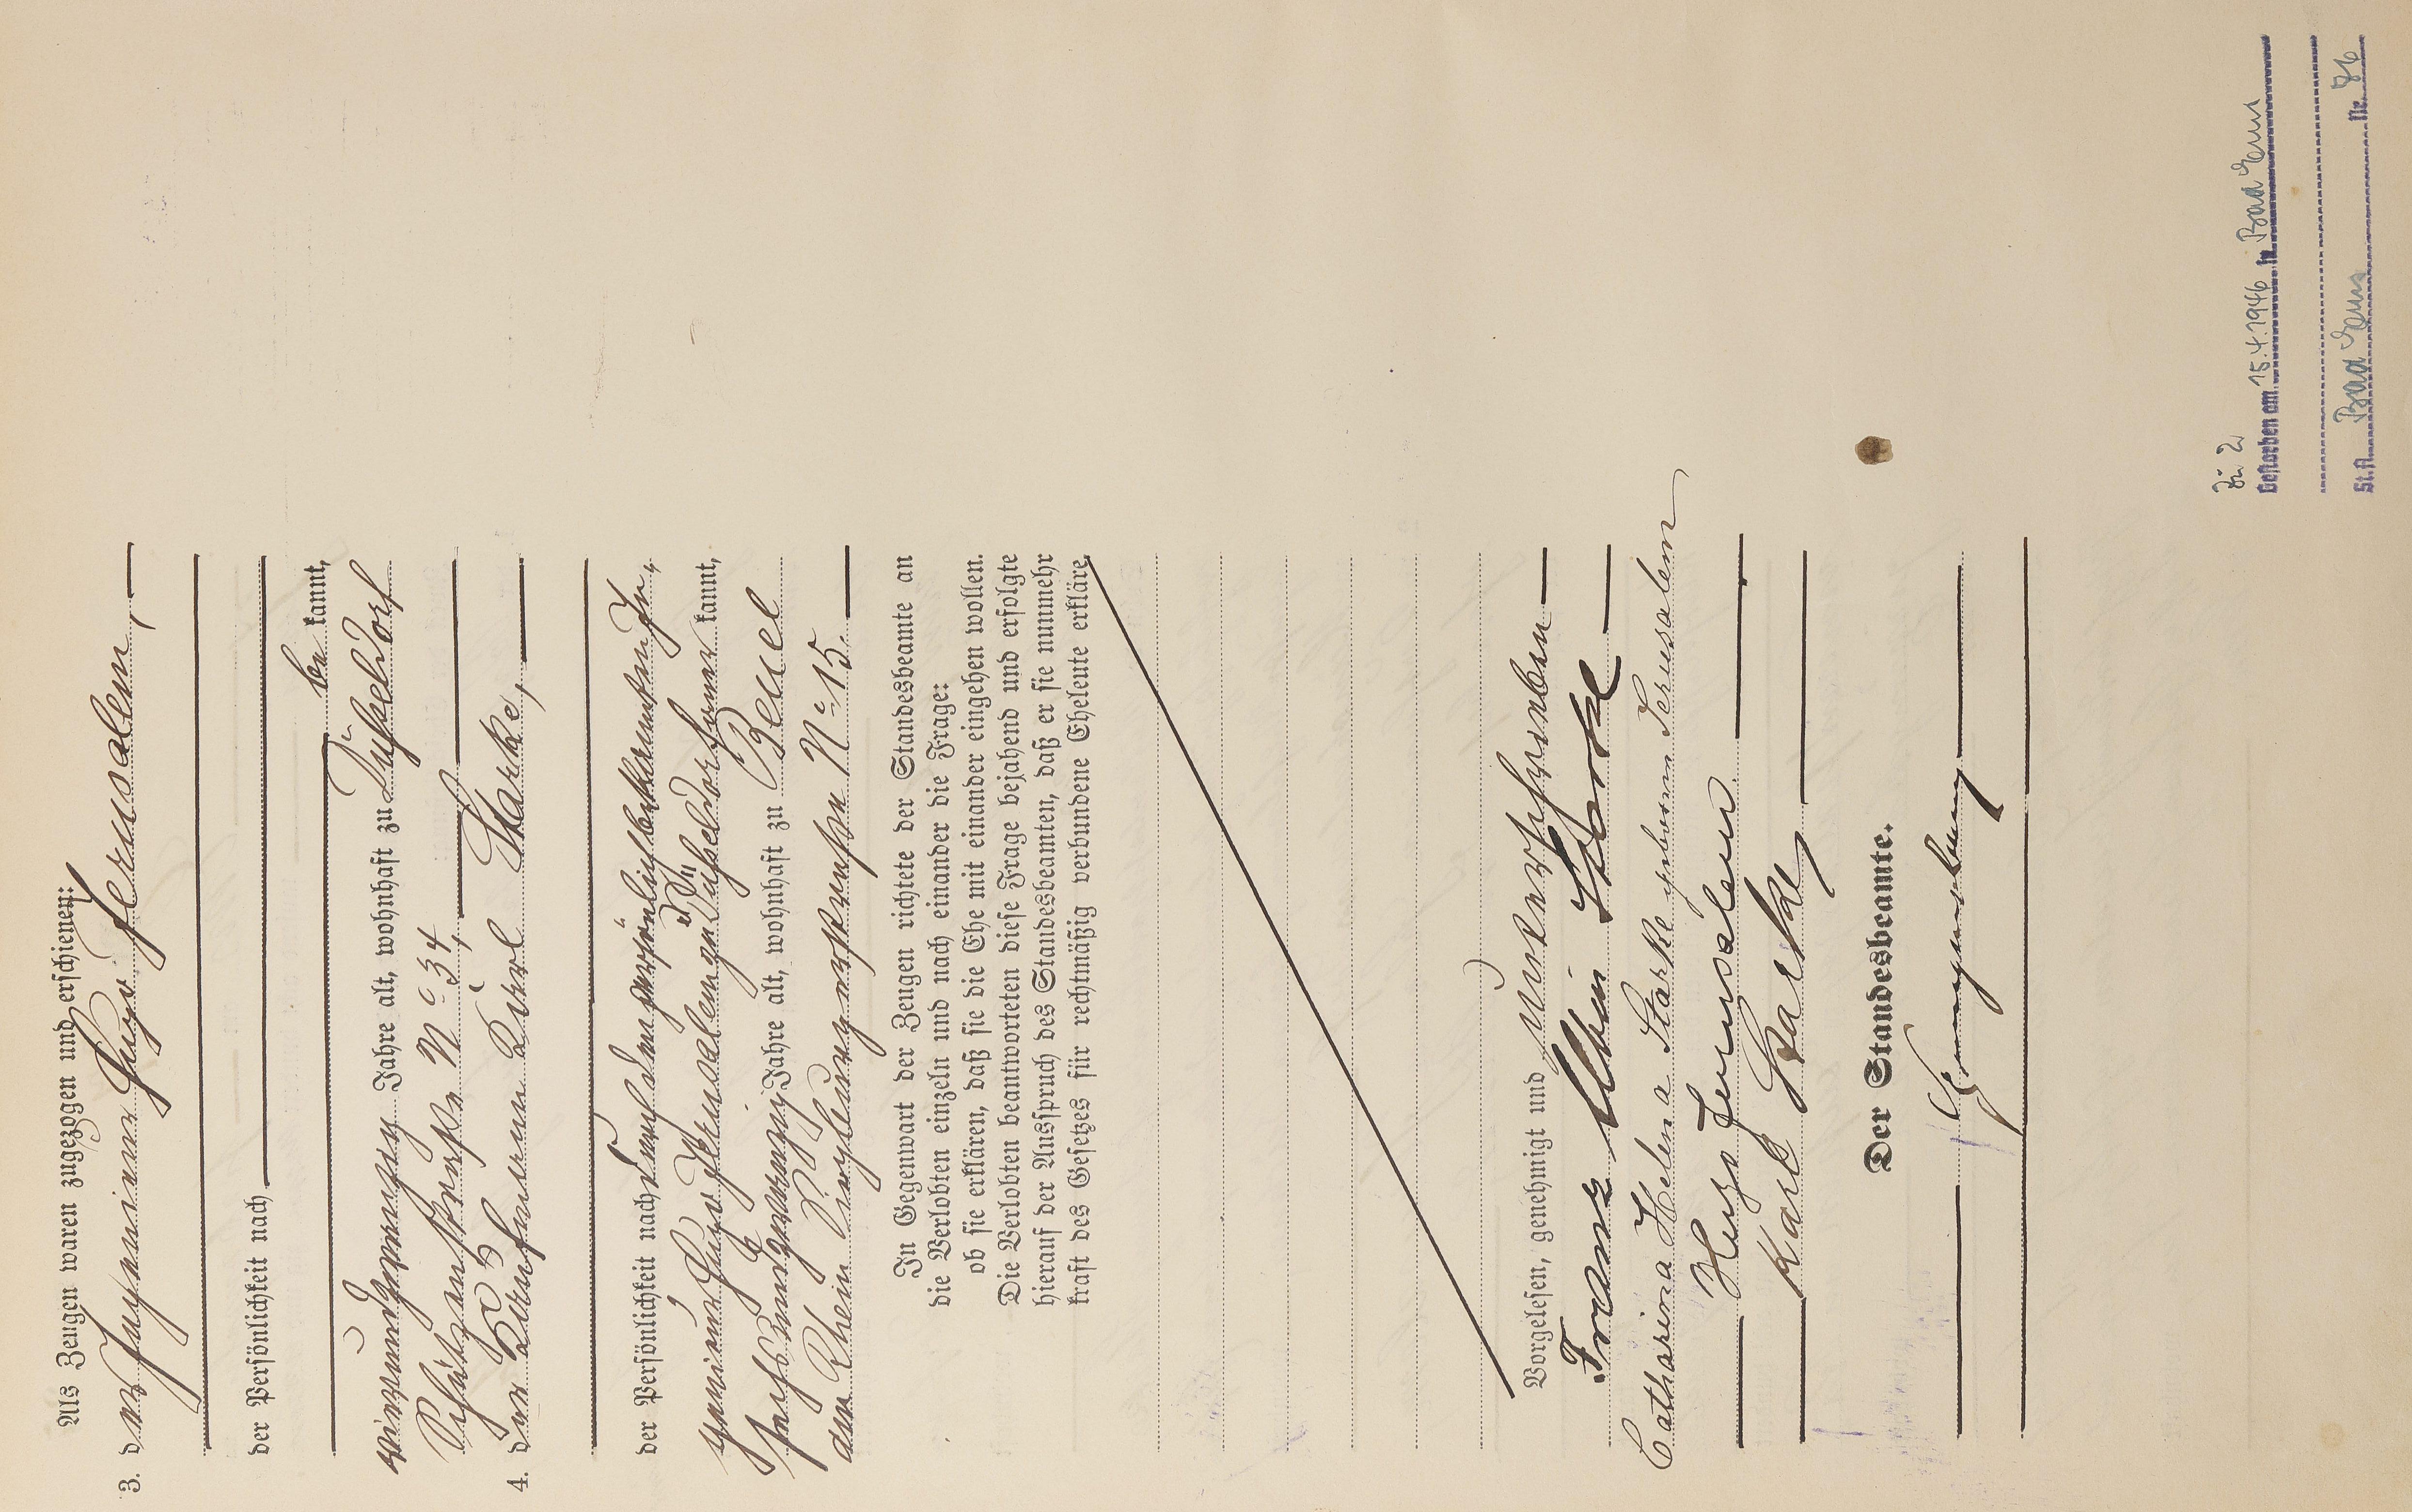 Als Zeugen waren zugezogen und erschienen:
3. der Ingenieur Hugo Jerusalem,
der Persönlichkeit nach
be kannt,
vierundzwanzig Jahre alt, wohnhaft zu Düsseldorf
Schützenstraße No 34,
4. der Kaufmann Karl Starke,
der Persönlichkeit nach durch den persönlich bekannten In-
genieur Hugo Jerusalem zu Düsseldorf aner kannt,
sechsundzwanzig Jahre alt, wohnhaft zu Beuel
am Rhein Siegburgerstraße No 15.
In Gegenwart der Zeugen richtete der Standesbeamte an
die Verlobten einzeln und nach einander die Frage:
ob sie erklären, daß sie die Ehe mit einander eingehen wollen.
Die Verlobten beantworteten diese Frage bejahend und erfolgte
hierauf der Ausspruch des Standesbeamten, daß er sie nunmehr
kraft des Gesetzes für rechtmäßig verbundene Eheleute erkläre.
Vorgelesen, genehmigt und unterschrieben
Franz Albin Starke
Catharina Helena Starke geborene Jerusalem
Hugo Jerusalem
Karl Starke
Der Standesbeamte.
Zu 2
Gestorben am 15.4.1946 in Bad Ems
St.A. Bad Ems Nr. 76